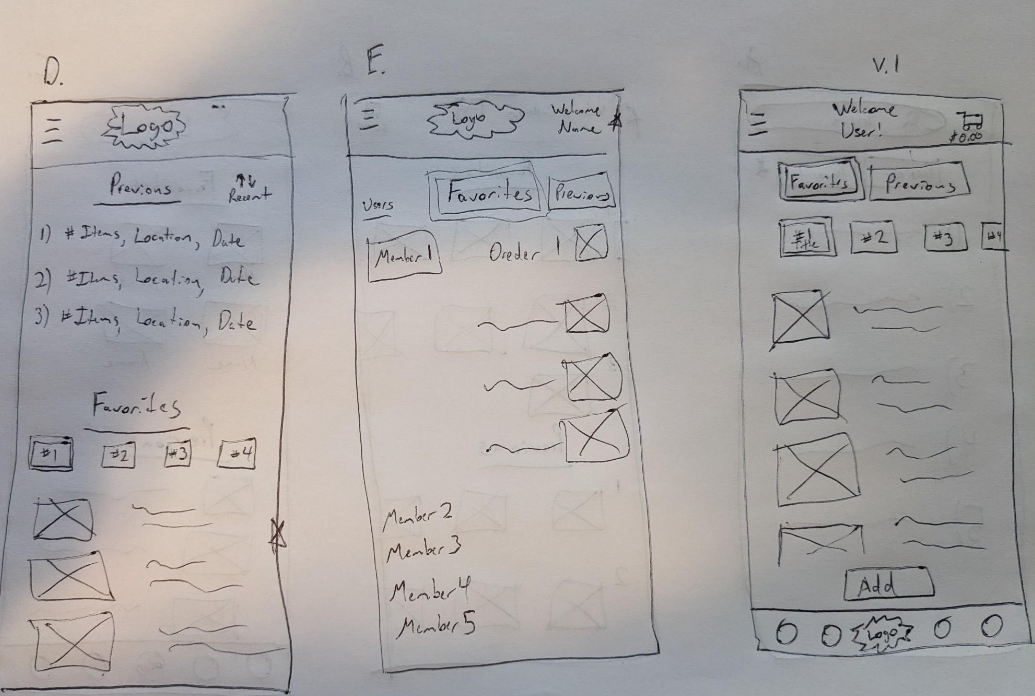 D.
Logo
Previous
↑↓
Recent
1) # Items, Location, Date
2) #Items, Location, Date
3) # Items, Location, Date
Favorites
#1 #2 #3 #4
E.
Logo
Welcome
Name
Users Favorites Previous
Member 1 Oreder 1
Member 2
Member 3
Member 4
Member 5
V.1
Welcome
User!
$0.00
Favorites Previous
#1 #2 #3 #4
Title
Add
Logo